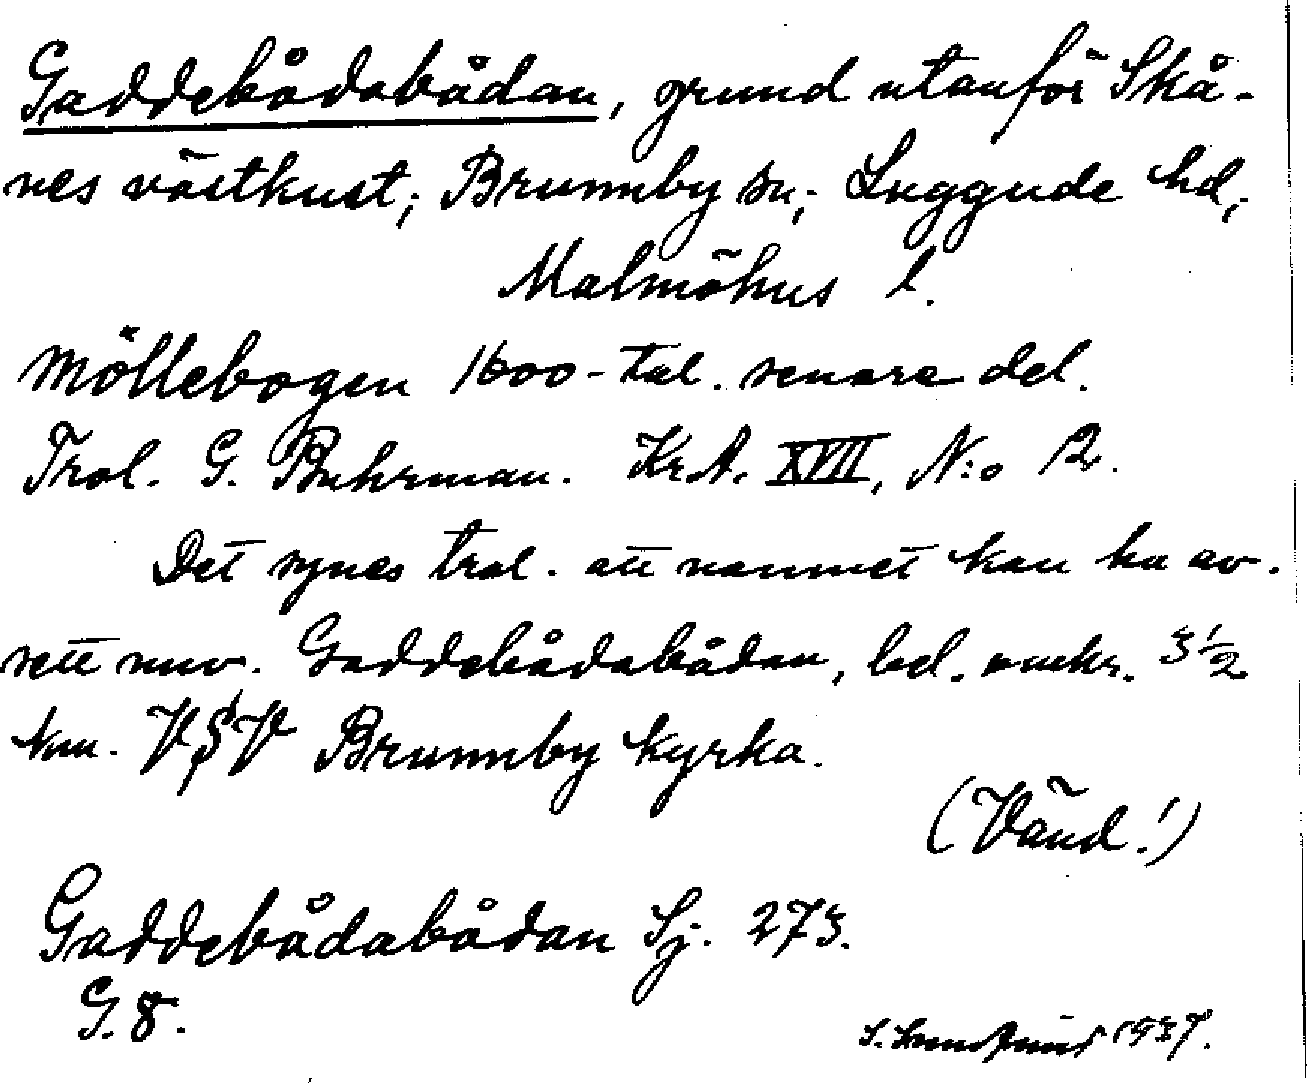 Gaddebådabådan, grund utanför Skå-
nes västkust; Brunnby sn; Luggude hd;
Malmöhus l.
Möllebogen 1600-tal. senare del.
Trol. G. Buhrman. Kr.A. XVII, N:o 12.
Det synes trol. att namnet kan ha av-
sett nuv. Gaddebådabådan, bel. omkr. 3 1/2
km. VSV Brunnby kyrka.
(Vänd!)
Gaddebådabådan Sj. 273.
G. 8.
1937.